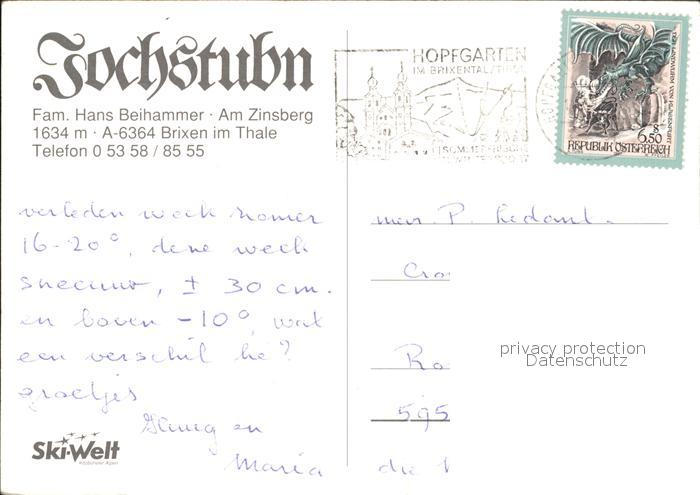 Jochstubn
Fam. Hans Beihammer · Am Zinsberg
1634 m · A-6364 Brixen im Thale
Telefon 0 53 58 / 85 55
HOPFGARTEN
IM BRIXENTAL/TIROL
6.50
REPUBLIK ÖSTERREICH
verleden week zomer
16-20°, deze week
sneeuw, ± 30 cm.
en boven -10°, wat
een verschil hé?
groetjes
en
Maria
P. Ledant.
Cro
Ro
595
die
privacy protection
Datenschutz
Ski-Welt